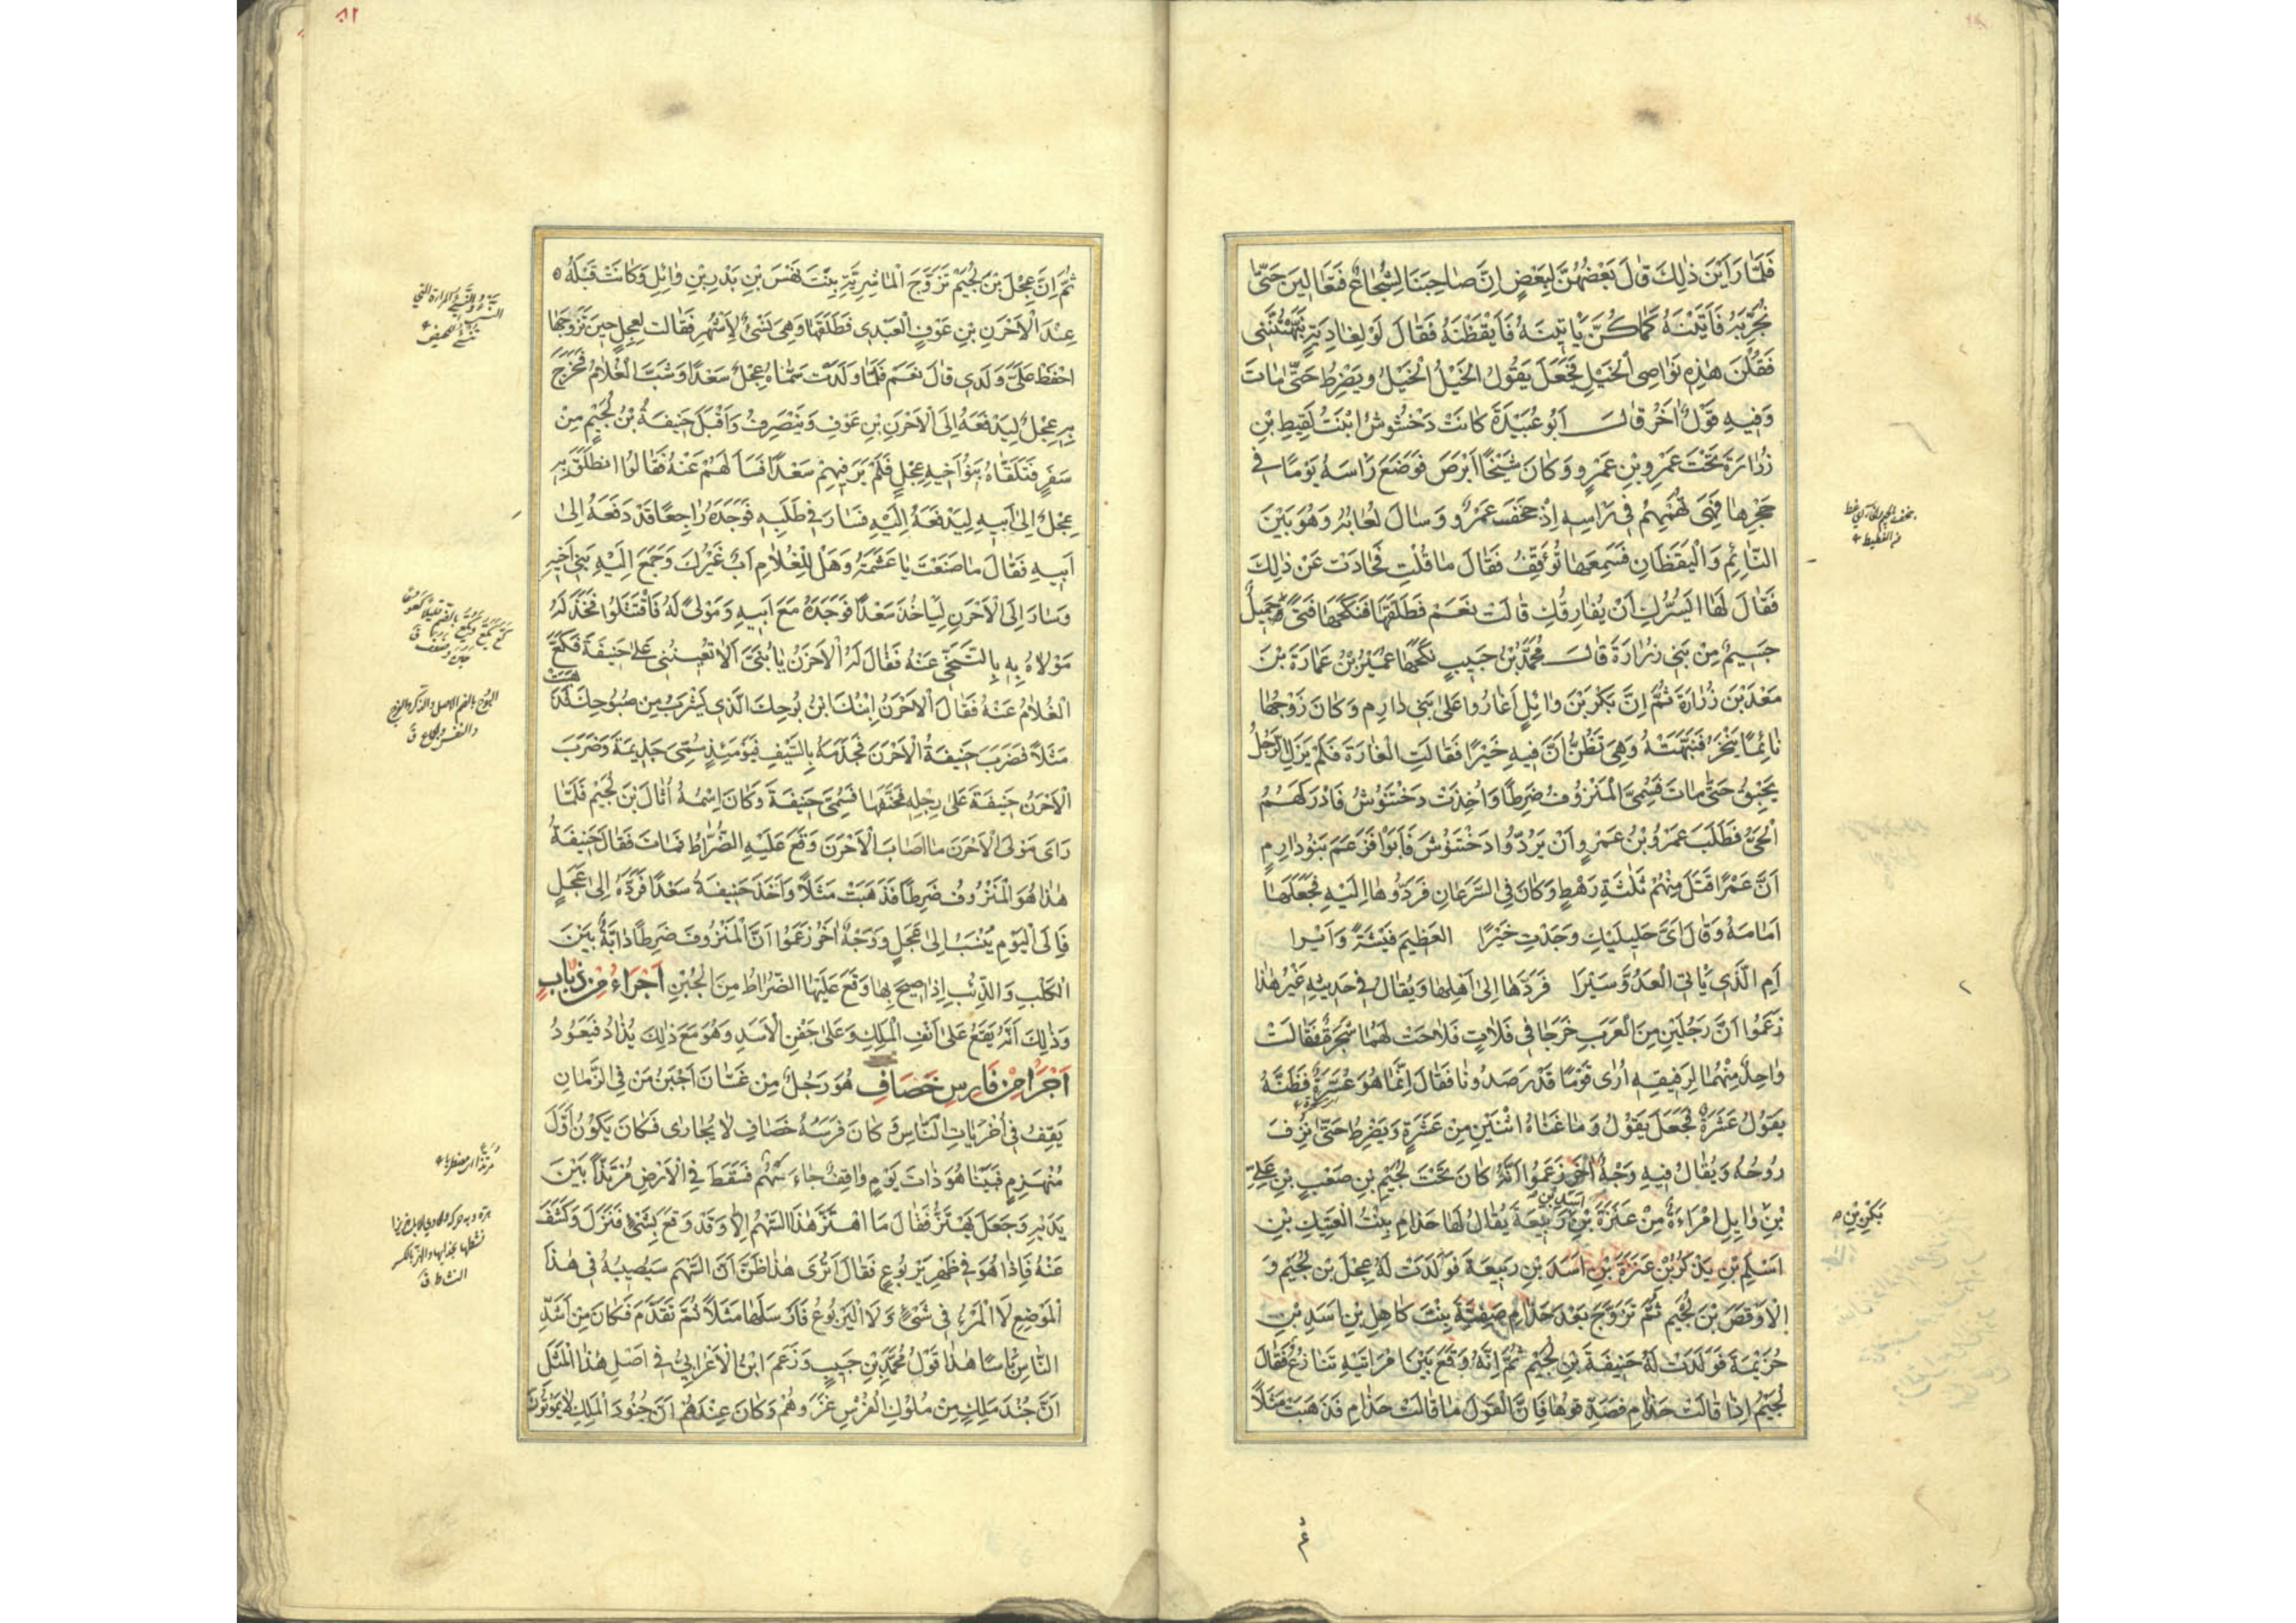 فَلَمَّا رَاَيْنَ ذٰلِكَ قَالَ بَعْضُهُنَّ لِبَعْضٍ اِنَّ صَاحِبَنَا لَشُجَاعٌ فَتَعَالَيْنَ حَتّٰى
نُجَرِّبَهُ فَاَتَيْنَهُ كَمَا كُنَّ يَاْتِينَهُ فَاَيْقَظْنَهُ فَقَالَ لَوْ لِغَادِيَةٍ نَبَّهْتُنَّنِى
فَقُلْنَ هٰذِهِ نَوَاصِى الْخَيْلِ فَجَعَلَ يَقُولُ الْخَيْلُ الْخَيْلُ وَيَضْرِطُ حَتّٰى مَاتَ
وَفِيهِ قَوْلٌ اٰخَرُ قَالَ اَبُو عُبَيْدَةَ كَانَتْ دَخْتَنُوشُ ابْنَتُ لَقِيطِ بْنِ
زُرَارَةَ تَحْتَ عَمْرِو بْنِ عَمْرٍو وَكَانَ شَيْخًا اَبْرَصَ فَوَضَعَ رَاْسَهُ يَوْمًا فِى
حَجْرِهَا فَهِىَ تُهَمْهِمُ فِى رَاْسِهِ اِذْ جَخَفَ عَمْرٌو وَسَالَ لُعَابُهُ وَهُوَ بَيْنَ
النَّائِمِ وَالْيَقْظَانِ فَسَمِعَهَا تُؤَفِّفُ فَقَالَ مَا قُلْتِ فَحَادَتْ عَنْ ذٰلِكَ
فَقَالَ لَهَا اَيَسُرُّكِ اَنْ يُفَارِقُكِ قَالَتْ نَعَمْ فَطَلَّقَهَا فَنَكَحَهَا فَتًى جَمِيلٌ
جَسِيمٌ مِنْ بَنِى زُرَارَةَ قَالَ مُحَمَّدُ بْنُ حَبِيبٍ نَكَحَهَا عُمَيْرُ بْنُ عَمَارَةَ بْنِ
مَعْبَدِ بْنِ زُرَارَةَ ثُمَّ اِنَّ بَكْرَ بْنَ وَائِلٍ اَغَارُوا عَلٰى بَنِى دَارِمٍ وَكَانَ زَوْجُهَا
نَائِمًا يَنْخَرُ فَنَبَّهَتْهُ وَهِىَ تَظُنُّ اَنَّ فِيهِ خَيْرًا فَقَالَتِ الْغَارَةَ فَلَمْ يَزَلِ الرَّجُلُ
يَحْبِقُ حَتّٰى مَاتَ فَسُمِّىَ الْمَنْزُوفُ ضَرِطًا وَاُخِذَتْ دَخْتَنُوشُ فَادْرَكَهُمُ
الْحَىُّ فَطَلَبَ عَمْرُو بْنُ عَمْرٍو اَنْ يَرُدُّوا دَخْتَنُوشَ فَاَبَوْا فَزَعَمَ بَنُو دَارِمٍ
اَنَّ عَمْرًا قَتَلَ مِنْهُمْ ثَلٰثَةَ رَهْطٍ وَكَانَ فِى السَّرَعَانِ فَرَدُّوهَا اِلَيْهِ فَجَعَلَهَا
اَمَامَهُ وَقَالَ اَىَّ خَلِيلَيْكِ وَجَدْتِ خَيْرًا الْعَظِيمَ فَيْشَةً وَاَيْرًا
اَمِ الَّذِى يَاْتِى الْعَدُوَّ سَيْرًا فَرَدَّهَا اِلٰى اَهْلِهَا وَيُقَالُ فِى حَدِيثِهِ غَيْرُ هٰذَا
زَعَمُوا اَنَّ رَجُلَيْنِ مِنَ الْعَرَبِ خَرَجَا فِى فَلَاتٍ فَلَاحَتْ لَهُمَا شَجَرَةٌ فَقَالَتْ
وَاحِدٌ مِنْهُمَا لِرَفِيقِهِ اَرٰى قَوْمًا قَدْ رَصَدُونَا فَقَالَ اِنَّمَا هُوَ عُشَرَةٌ فَظَنَّهُ
يَقُولُ عَشَرَةٌ فَجَعَلَ يَقُولُ وَمَا غَنَاءُ اثْنَيْنِ مِنْ عَشَرَةٍ وَيَضْرِطُ حَتّٰى نُزِفَ
رُوحُهُ وَيُقَالُ فِيهِ وَجْهٌ اٰخَرُ زَعَمُوا اَنَّهُ كَانَ تَحْتَ لُجَيْمِ بْنِ صَعْبِ بْنِ عَلِىِّ
بْنِ وَايِلٍ امْرَاَةٌ مِنْ عَنَزَةَ بْنِ اَسَدِ بْنِ رَبِيعَةَ يُقَالُ لَهَا حَذَامِ بِنْتُ الْعَتِيكِ بْنِ
اَسْلَمَ بْنِ يَذْكُرَ بْنِ عَنَزَةَ بْنِ اَسَدِ بْنِ رَبِيعَةَ فَوَلَدَتْ لَهُ عِجْلَ بْنَ لُجَيْمٍ وَ
الْاَوْقَصَ بْنَ لُجَيْمٍ ثُمَّ تَزَوَّجَ بَعْدَ حَذَامِ صَفِيَّةَ بِنْتَ كَاهِلِ بْنِ اَسَدِ بْنِ
خُزَيْمَةَ فَوَلَدَتْ لَهُ حَنِيفَةَ بْنَ لُجَيْمٍ ثُمَّ اِنَّهُ وَقَعَ بَيْنَ امْرَاَتَيْهِ تَنَازُعٌ فَقَالَ
لُجَيْمٌ اِذَا قَالَتْ حَذَامِ فَصَدِّقُوهَا فَاِنَّ الْقَوْلَ مَا قَالَتْ حَذَامِ فَذَهَبَتْ مَثَلًا
بَكْرِ بْنِ
ثم
٨٢
ثُمَّ اِنَّ عِجْلَ بْنَ لُجَيْمٍ تَزَوَّجَ الْمَاشِرِيَّةَ بِنْتَ نَهَسَ بْنِ بَدْرِ بْنِ وَائِلٍ وَكَانَتْ قَبْلَهُ
عِنْدَ الْاَحْزَنِ بْنِ عَوْفٍ الْعَبْدِى فَطَلَّقَهَا وَهِىَ نَسْىءٌ لِاَشْهُرٍ فَقَالَتْ لِعِجْلٍ حِينَ تَزَوَّجَهَا
احْفَظْ عَلَىَّ وَلَدِى قَالَ نَعَمْ فَلَمَّا وَلَدَتْ سَمَّاهُ عِجْلٌ سَعْدًا وَشَبَّ الْغُلَامُ فَخَرَجَ
بِهِ عِجْلٌ لِيَدْفَعَهُ اِلَى الْاَحْزَنِ بْنِ عَوْفٍ وَيَنْصَرِفُ وَاَقْبَلَ حَنِيفَةُ بْنُ لُجَيْمٍ مِنْ
سَفَرٍ فَتَلَقَّاهُ بَنُو اَخِيهِ عِجْلٍ فَلَمْ يَرَ فِيهِمْ سَعْدًا فَسَاَلَهُمْ عَنْهُ فَقَالُوا انْطَلَقَ بِهِ
عِجْلٌ اِلٰى اَبِيهِ لِيَدْفَعَهُ اِلَيْهِ فَسَارَ فِى طَلَبِهِ فَوَجَدَهُ رَاجِعًا قَدْ دَفَعَهُ اِلٰى
اَبِيهِ فَقَالَ مَا صَنَعْتَ يَا عَشَمَةُ وَهَلْ لِلْغُلَامِ اَبٌ غَيْرُكَ وَجَمَعَ اِلَيْهِ بَنِى اَخِيهِ
وَسَارَ اِلَى الْاَحْزَنِ لِيَاخُذَ سَعْدًا فَوَجَدَهُ مَعَ اَبِيهِ وَمَوْلًى لَهُ فَاقْتَتَلُوا فَخَذَلَهُ
مَوْلَاهُ بِهِ بِالتَّنَحِّى عَنْهُ فَقَالَ لَهُ الْاَحْزَنُ يَا بُنَىَّ اَلَا تُعِينُنِى عَلٰى حَنِيفَةَ فَكَعَّ
الْغُلَامُ عَنْهُ فَقَالَ الْاَحْزَنُ اِبْنُكَ ابْنُ بُوحِكَ الَّذِى يَشْرَبُ مِنْ صَبُوحِكَ فَذَهَبَتْ
مَثَلًا فَضَرَبَ حَنِيفَةُ الْاَحْزَنَ فَجَذَمَهُ بِالسَّيْفِ فَيَوْمَئِذٍ سُمِّىَ جَذِيمَةَ وَضَرَبَ
الْاَحْزَنُ حَنِيفَةَ عَلٰى رِجْلِهِ فَحَنَفَهَا فَسُمِّىَ حَنِيفَةَ وَكَانَ اِسْمُهُ اُثَالَ بْنَ لُجَيْمٍ فَلَمَّا
رَاَى مَوْلَى الْاَحْزَنِ مَا اَصَابَ الْاَحْزَنَ وَقَعَ عَلَيْهِ الضُّرَاطُ فَمَاتَ فَقَالَ حَنِيفَةُ
هٰذَا هُوَ الْمَنْزُوفُ ضَرِطًا فَذَهَبَتْ مَثَلًا وَاَخَذَ حَنِيفَةُ سَعْدًا فَرَدَّهُ اِلٰى عِجْلٍ
فَاِلَى الْيَوْمِ يُنْسَبُ اِلٰى عِجْلٍ وَوَجْهٌ اٰخَرُ زَعَمُوا اَنَّ الْمَنْزُوفَ ضَرِطًا دَابَّةٌ بَيْنَ
الْكَلْبِ وَالذِّئْبِ اِذَا صِيحَ بِهَا وَقَعَ عَلَيْهَا الضُّرَاطُ مِنَ الْجُبْنِ اَجْرَاءُ مِنْ ذُبَابٍ
وَذٰلِكَ اَنَّهُ يَقَعُ عَلٰى اَنْفِ الْمَلِكِ وَعَلٰى جَفْنِ الْاَسَدِ وَهُوَ مَعَ ذٰلِكَ يُذَادُ فَيَعُودُ
اَجْرَا مِنْ فَارِسِ خَصَافِ هُوَ رَجُلٌ مِنْ غَسَّانَ اَجْبَنُ مَنْ فِى الزَّمَانِ
يَقِفُ فِى اُخْرَيَاتِ النَّاسِ وَكَانَ فَرَسُهُ خَصَافِ لَا يُجَارٰى فَكَانَ يَكُونُ اَوَّلَ
مُنْهَزِمٍ فَبَيْنَا هُوَ ذَاتَ يَوْمٍ وَاقِفٌ جَاءَ سَهْمٌ فَسَقَطَ فِى الْاَرْضِ مُرْتَزًّا بَيْنَ
يَدَيْهِ وَجَعَلَ يَهْتَزُّ فَقَالَ مَا اهْتَزَّ هٰذَا السَّهْمُ اِلَّا وَقَدْ وَقَعَ بِشَىْءٍ فَنَزَلَ وَكَشَفَ
عَنْهُ فَاِذَا هُوَ فِى ظَهْرِ يَرْبُوعٍ فَقَالَ اَتُرٰى هٰذَا ظَنَّ اَنَّ السَّهْمَ سَيُصِيبُهُ فِى هٰذَا
الْمَوْضِعِ لَا الْمَرْءُ فِى شَىْءٍ وَلَا الْيَرْبُوعُ فَاَرْسَلَهَا مَثَلًا ثُمَّ تَقَدَّمَ فَكَانَ مِنْ اَشَدِّ
النَّاسِ بَاْسًا هٰذَا قَوْلُ مُحَمَّدِ بْنِ حَبِيبٍ وَزَعَمَ ابْنُ الْاَعْرَابِىِّ فِى اَصْلِ هٰذَا الْمَثَلِ
اَنَّ جُنْدَ مَلِكٍ مِنْ مُلُوكِ الْفُرْسِ غَزَوْهُمْ وَكَانَ عِنْدَهُمْ اَنَّ جُنُودَ الْمَلِكِ لَا يَمُوتُونَ